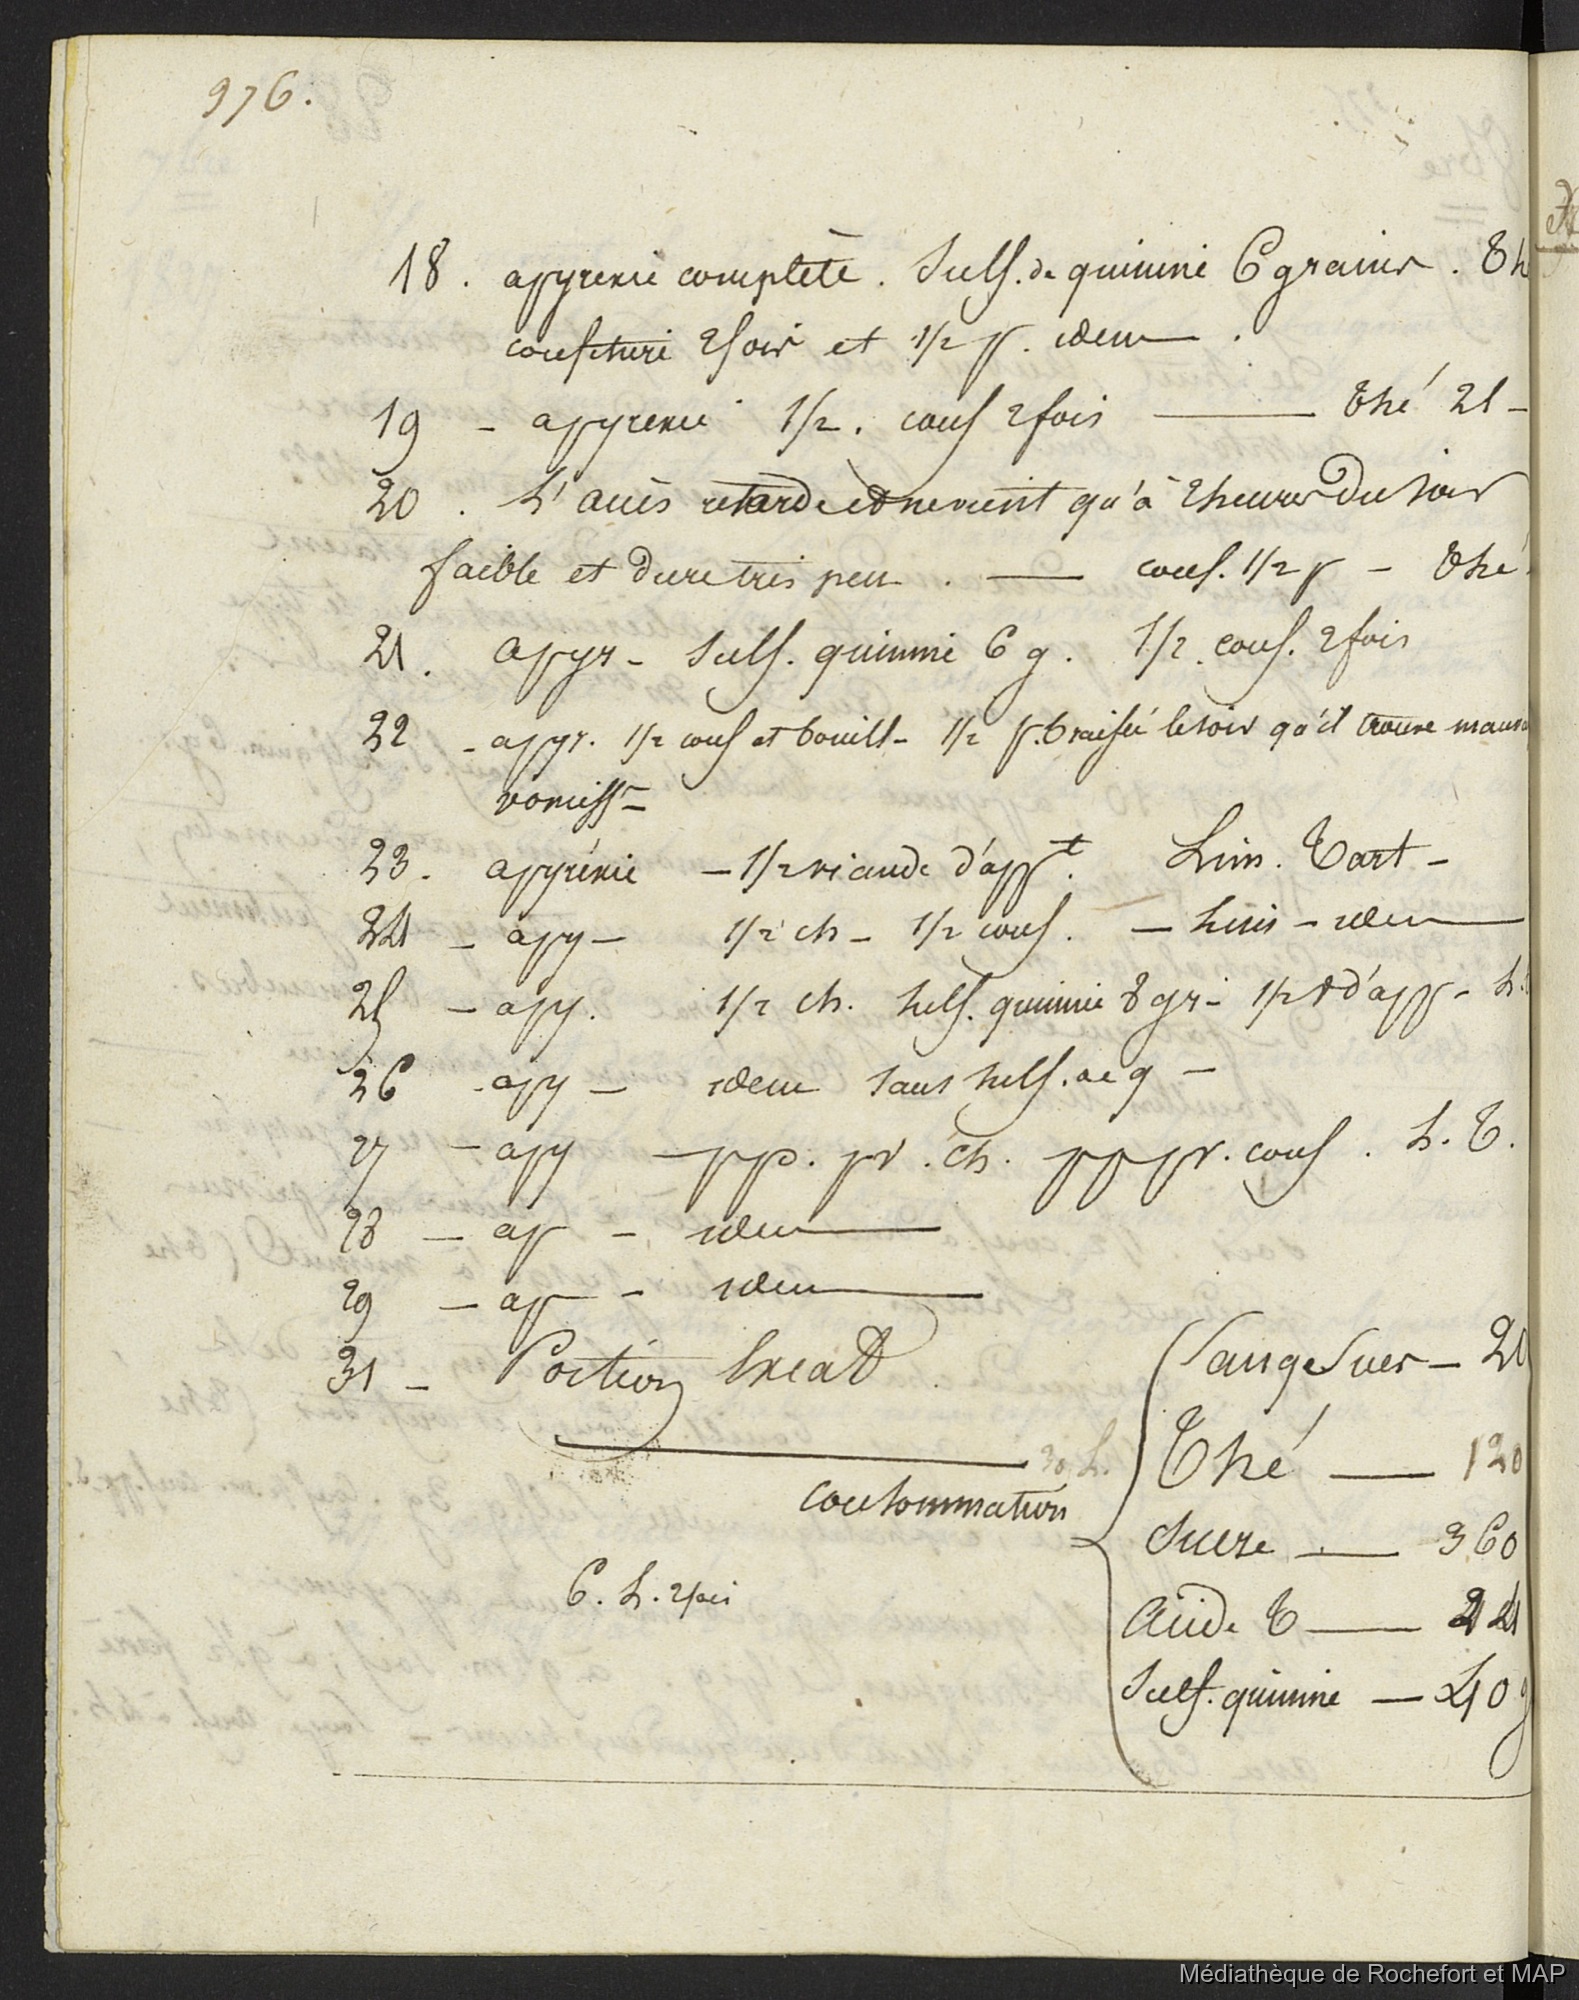 976.
18. apyrexie complète. Sulf. de quinine 6 grains. Th
confiture 2 fois et 1/2 p. idem.
19 - apyrexie 1/2. conf 2 fois — Thé 21 -
20. L'accès retarde et ne vient qu'à 2 heures du soir
faible et dure très peu. — conf. 1/2 p - Thé
21. apyr - Sulf. quinine 6 g. 1/2 conf. 2 fois
22 - apyr. 1/2 conf et bouill - 1/2 p. le soir qu'il trouve mauv
vomisst
23. apyrexie - 1/2 viande d'appt. Lim. Tart -
24 - apy - 1/2 ch - 1/2 conf. - Lim - idem
25 - apy. 1/2 ch. Sulf. quinine 8 gr - 1/2 d'app - L.
26 - apy - idem sans sulf. de q -
27 - apy - pp. pr. ch. pp pr. conf. L. T.
28 - ap - idem
29 - ap - idem
31 - Portion Exeat
Sangsues - 20
30 L. Thé — 120
consommation
Sucre — 360
6. L. 2 fois
Acide T — 24
Sulf. quinine — 40 g
Médiathèque de Rochefort et MAP